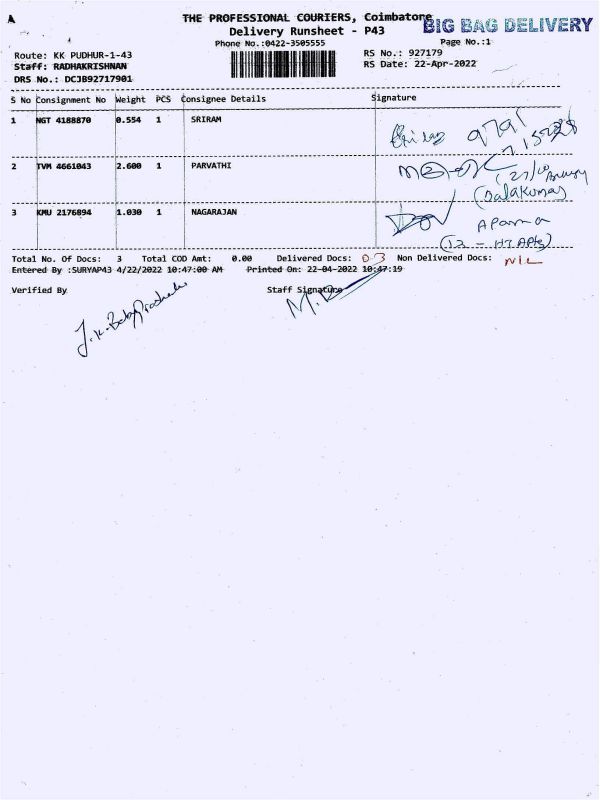 THE PROFESSIONAL COURIERS, Coimbatore
BIG BAG DELIVERY
Delivery Runsheet - P43
Phone No.:0422-3505555
Page No.:1
Route: KK PUDHUR-1-43
RS No.: 927179
Staff: RADHAKRISHNAN
RS Date: 22-Apr-2022
DRS No.: DCJB92717901
S No Consignment No Weight PCS Consignee Details Signature
1 NGT 4188870 0.554 1 SRIRAM
2 TVM 4661043 2.600 1 PARVATHI
(Balakumar)
3 KMU 2176894 1.030 1 NAGARAJAN
Aparna
Total No. Of Docs: 3 Total COD Amt: 0.00 Delivered Docs: 03 Non Delivered Docs: NIL
Entered By :SURYAP43 4/22/2022 10:47:00 AM Printed On: 22-04-2022 10:47:19
Verified By Staff Signature